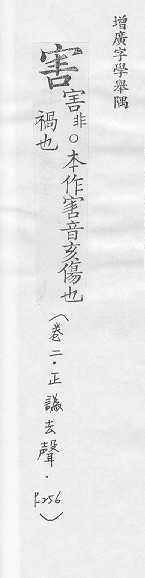 增廣字學舉隅
害害非。本作害音亥傷也
禍也
(卷二·正譌去聲·P.256)